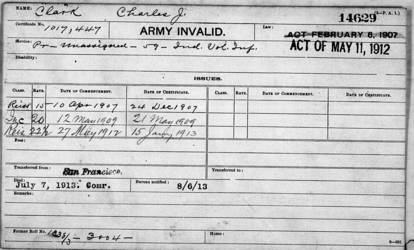 NAME: Clark Charles J.
14629
Certificate No. 1,017,447 ARMY INVALID. ACT FEBRUARY 6, 1907
ACT OF MAY 11, 1912
Service: Pr- unassigned - 59 - Ind. Vol. Inf.
Disability:
ISSUES.
CLASS. RATE. DATE OF COMMENCEMENT. DATE OF CERTIFICATE. CLASS. RATE. DATE OF COMMENCEMENT. DATE OF CERTIFICATE.
15- 10 Apr 1907 24 Dec 1907
Inc 20 12 May 1909 21 May 1909
27 May 1912 1913
Fees:
Transferred from San Francisco. Transferred to:
Died: July 7, 1913. Comr. Bureau notified: 8/6/13
Remarks:
Former Roll No. Home: